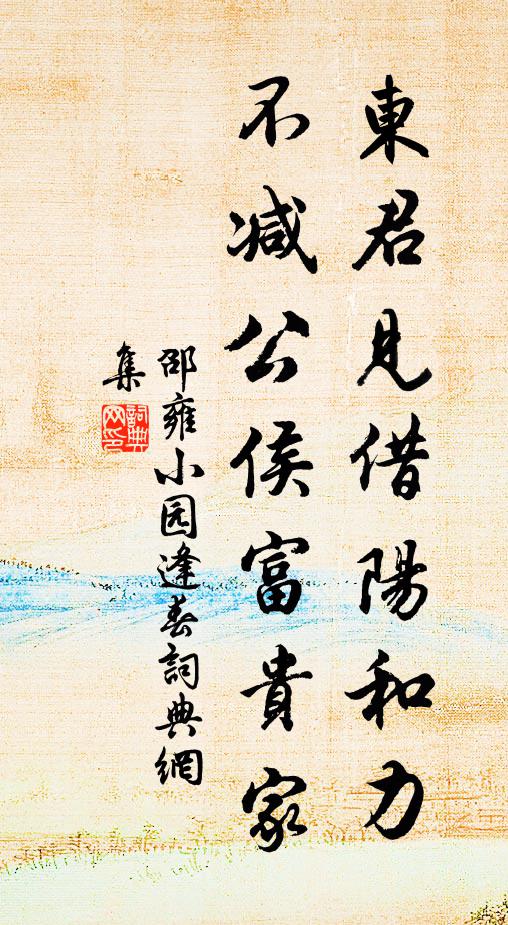 東君見借陽和力
不减公侯富貴家
邵雍小园逢春詞典網
集
詞典
网印